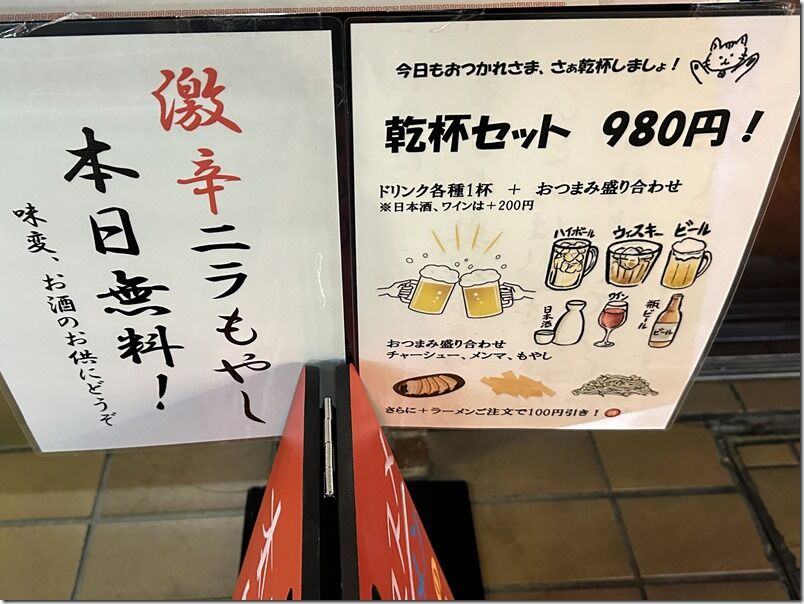 激辛ニラもやし
本日無料！
味変、お酒のお供にどうぞ
今日もおつかれさま、さぁ乾杯しましょ！
乾杯セット 980円！
ドリンク各種1杯 ＋ おつまみ盛り合わせ
※日本酒、ワインは＋200円
ハイボール
ウィスキー
ビール
日本酒
ワイン
瓶ビール
ビール
おつまみ盛り合わせ
チャーシュー、メンマ、もやし
さらに＋ラーメンご注文で100円引き！